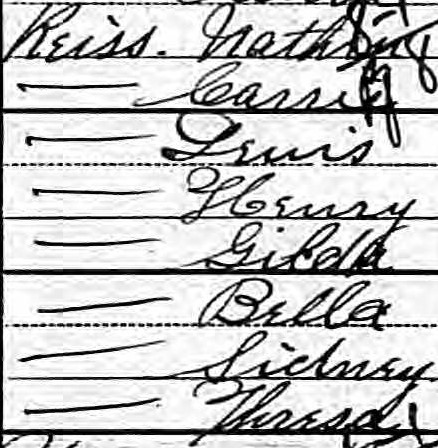 Reiss. Nathan
— Carrie
— Lewis
— Henry
— Gilda
— Bella
— Sidney
— Theresa